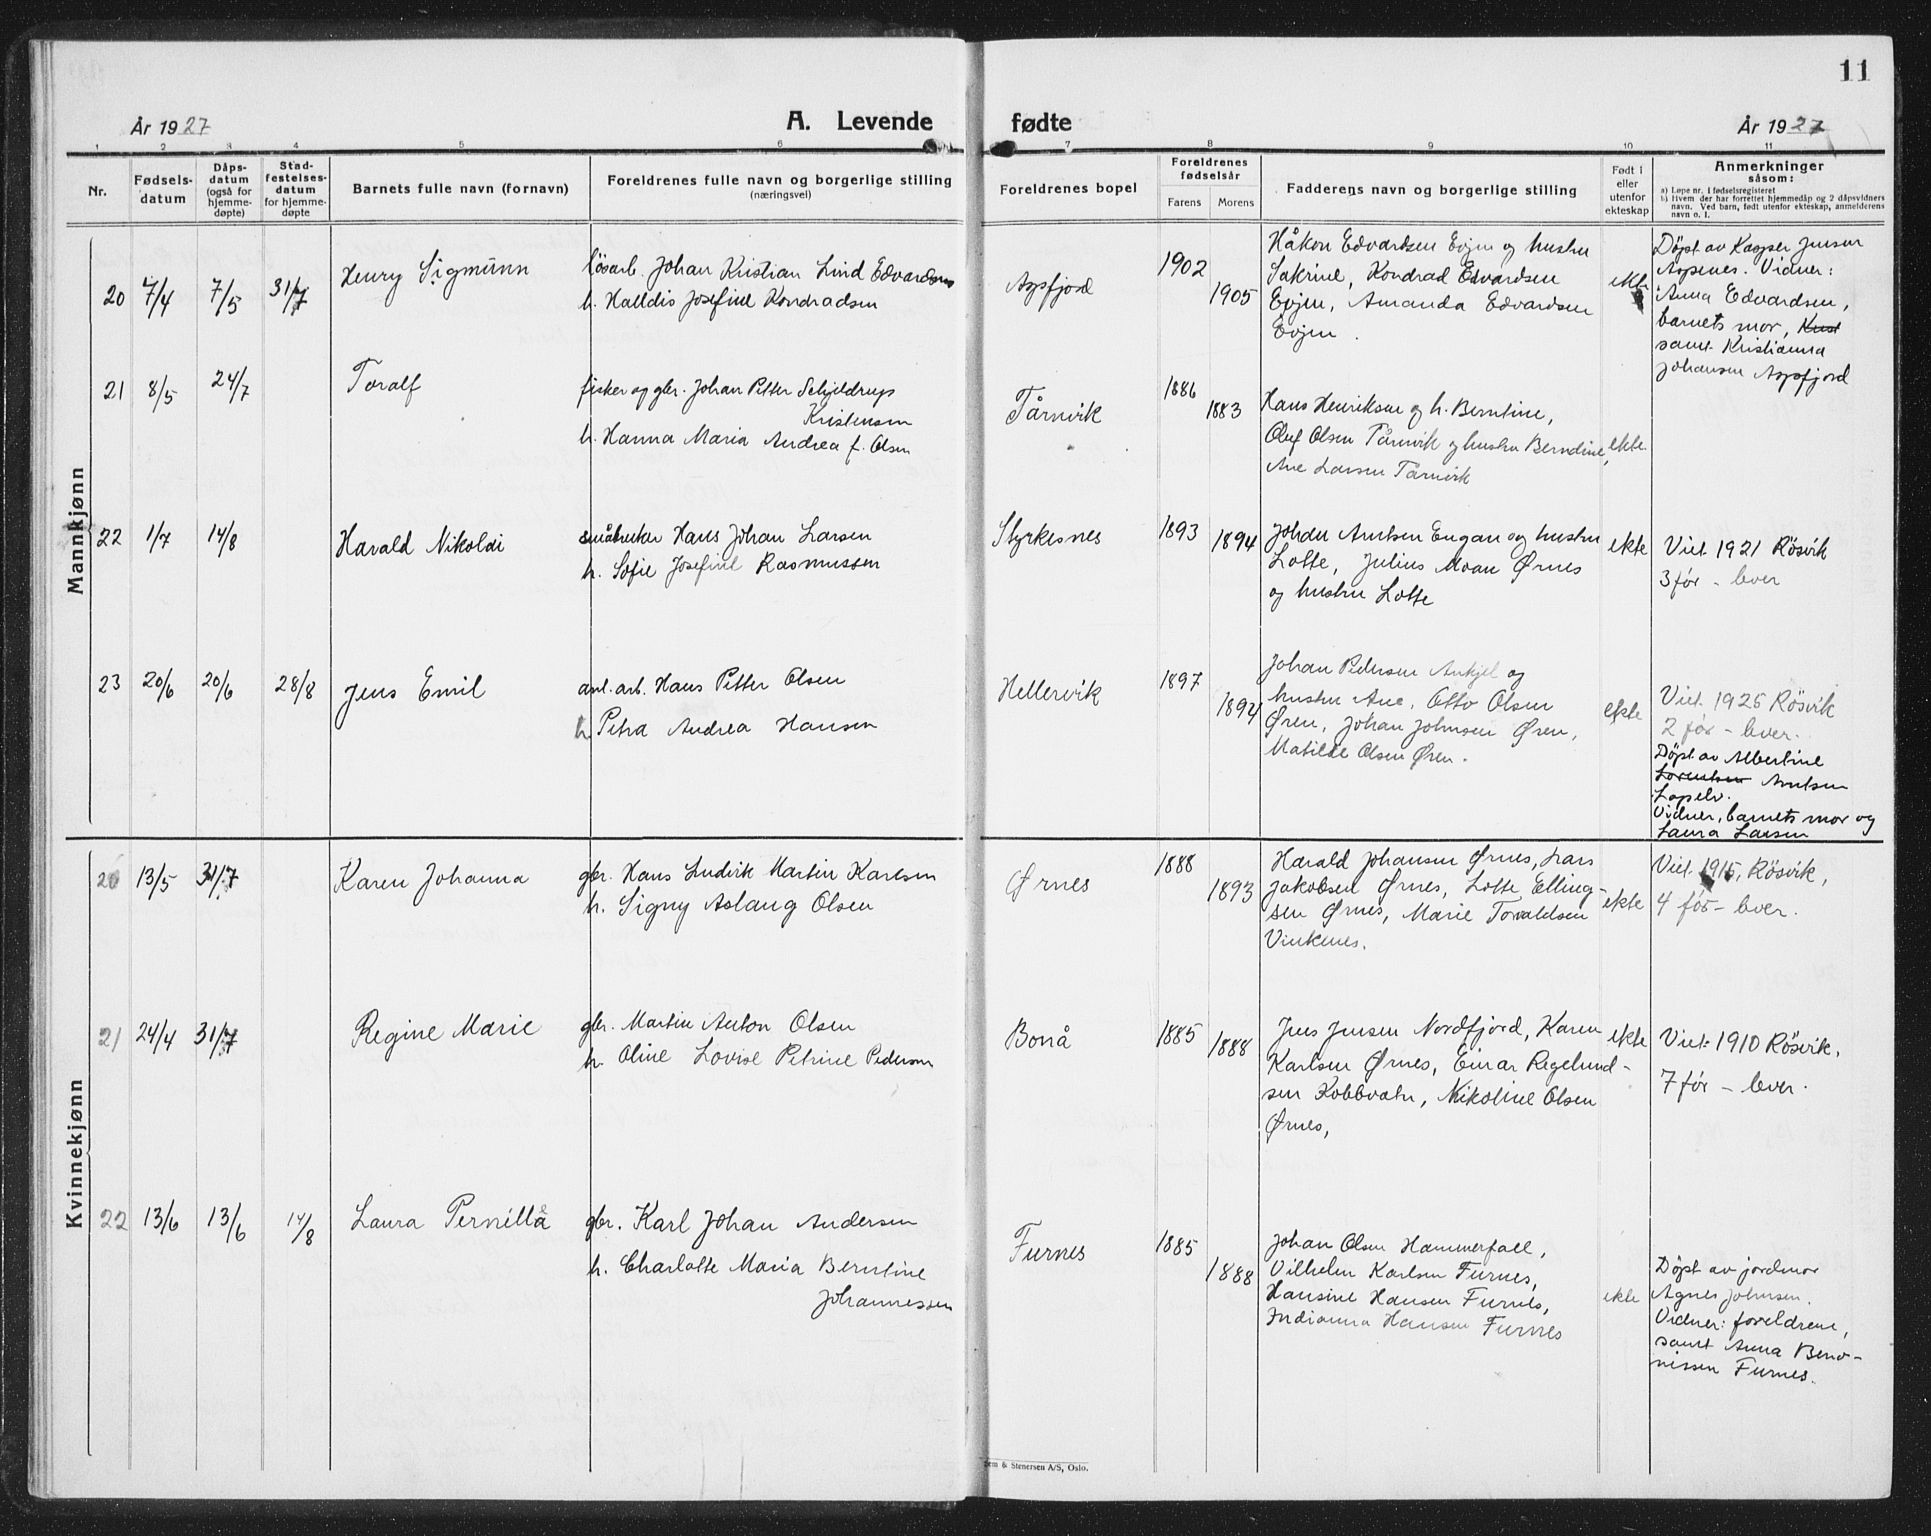 11
År 1927 A. Levende fødte År 1927
1 2 3 4 5 6 7 8 9 10 11
Nr.
Fødsels-
datum
Dåps-
datum
(også for
hjemme-
døpte)
Stad-
festelses-
datum
for hjemme-
døpte
Barnets fulle navn (fornavn)
Foreldrenes fulle navn og borgerlige stilling
(næringsvei)
Foreldrenes bopel
Foreldrenes
fødselsår
Farens Morens
Fadderens navn og borgerlige stilling
Født i
eller
utenfor
ekteskap
Anmerkninger
såsom:
a) Løpe nr. i fødselsregisteret
b) Hvem der har forrettet hjemmedåp og 2 dåpsvidners
navn. Ved barn, født utenfor ekteskap, anmelderens
navn o. l.
Mannkjønn
20 7/4 7/5 31/7 Henry Sigmunn
løsarb. Johan Kristian Lind Edvardsen
h. Halldis Josefine Kondradsen
Apsfjord
1902
1905
Håkon Edvardsen Evjen og hustru
Sakrine, Kondrad Edvardsen
Evjen, Amanda Edvardsen
Evjen.
ekte
Døpt av Kasper Jensen
Aspenes. Vidner:
Anna Edvardsen,
barnets mor,
samt Kristianna
Johansen Apsfjord
21 8/5 24/7 Toralf
fisker og gbr. Johan Petter Schjeldrup
Kristensen
h. Hanna Maria Andrea f. Olsen
Tårnvik
1886
1883
Hans Henriksen og h. Berntine,
Oluf Olsen Tårnvik og hustru Berndine,
Ane Larsen Tårnvik
ekte
22 1/7 14/8 Harald Nikolai
småbruker Hans Johan Larsen
h. Sofie Josefine Rasmussen
Styrkesnes
1893
1894
Johan Arntsen Engan og hustru
Lotte, Julius Moan Ørnes
og hustru Lotte
ekte
Viet 1921 Røsvik
3 før - lever
23 20/6 20/6 28/8 Jens Emil
anl. arb. Hans Petter Olsen
h. Petra Andrea Hansen
Hellervik
1897
1894
Johan Pedersen Ankjel og
hustru Ane, Otto Olsen
Øren, Johan Johnsen Øren,
Matilde Olsen Øren.
ekte
Viet 1925 Røsvik
2 før - lever.
Døpt av Albertine
Lorentsen Arntsen
Lapelv.
Vidner, barnets mor og
Laura Larsen
Kvinnekjønn
20 13/5 31/7 Karen Johanna
gbr. Hans Ludvik Martin Karlsen
h. Signy Aslaug Olsen
Ørnes
1888
1893
Harald Johansen Ørnes, Lars
Jakobsen Ørnes, Lotte Elling-
sen Ørnes, Marie Torvaldsen
Vinkenes.
ekte
Viet 1915, Røsvik,
4 før - lever.
21 24/4 31/7 Regine Marie
gbr. Martin Anton Olsen
h. Oline Lovise Petrine Pedersen
Bonå
1885
1888
Jens Jensen Nordfjord, Karen
Karlsen Ørnes, Einar Regelund-
sen Kobbvatn, Nikoline Olsen
Ørnes,
ekte
Viet 1910 Røsvik.
7 før - lever.
22 13/6 13/6 14/8 Laura Pernilla
gbr. Karl Johan Andersen
h. Charlotte Maria Berntine
Johannessen
Furnes
1885
1888
Johan Olsen Hammerfall,
Vilhelm Karlsen Furnes,
Hansine Hansen Furnes,
Indianna Hansen Furnes
ekte
Døpt av jordmor
Agnes Johnsen.
Vidner: foreldrene,
samt Anna Beno-
nissen Furnes.
& Stenersen A/S, Oslo.